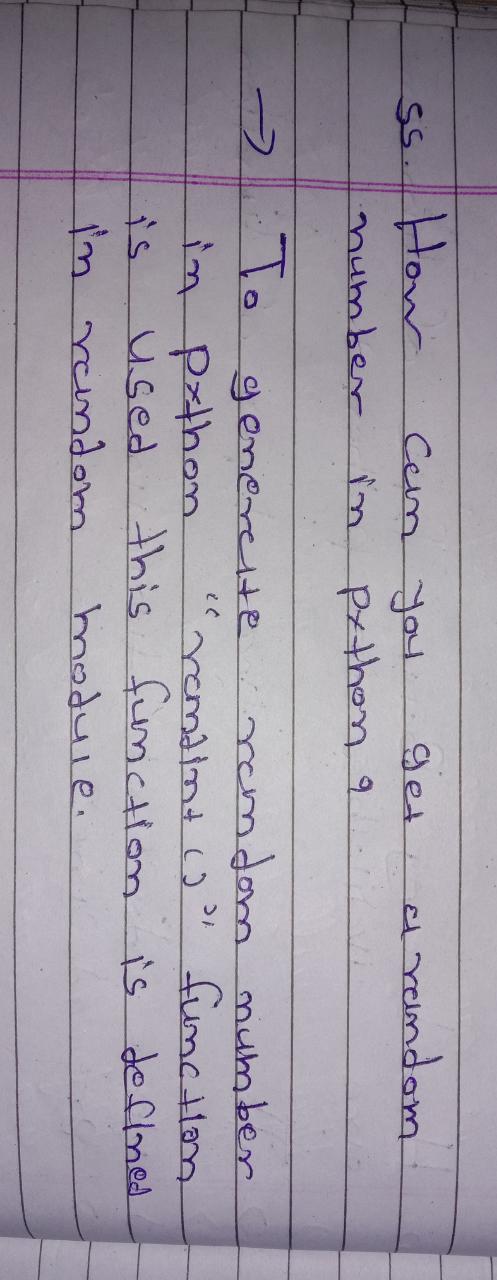 55. How can you get a random
number in python ?
→ To generate random number
in python "randint()" function
is used this function is defined
in random module.